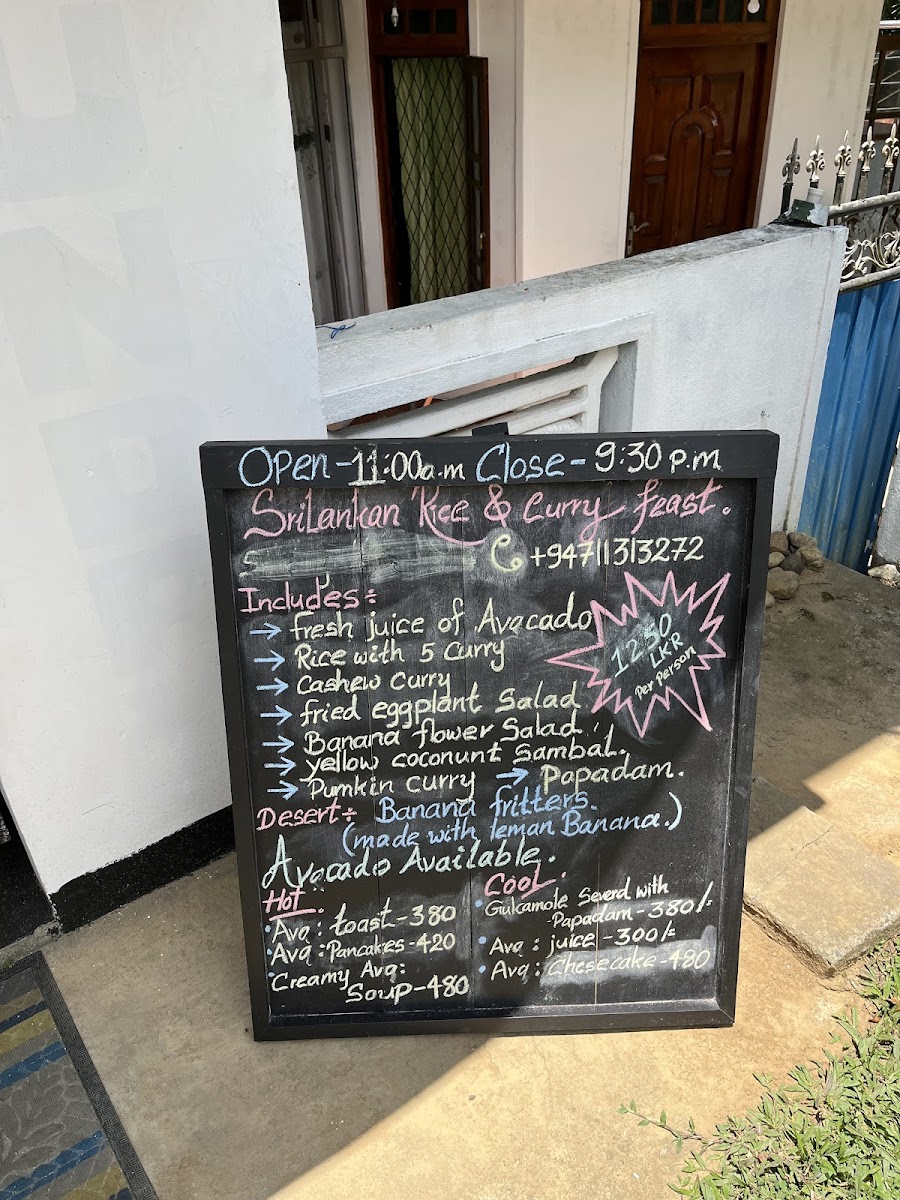 Open - 11:00a.m Close - 9:30 p.m
SriLankan Rice & Curry feast.
+94711313272
Includes÷
→ fresh juice of Avocado
→ Rice with 5 Curry
→ Cashew Curry
→ fried eggplant Salad
→ Banana flower Salad
→ yellow coconunt Sambal.
→ Pumkin curry → Papadam.
1250
LKR
Per Person
Desert÷ Banana fritters.
(made with leman Banana.)
Avocado Available.
Hot
• Avo: toast - 380
• Avo: Pancakes - 420
• Creamy Avo:
Soup - 480
Cool.
• Gukamole Severd with
Papadam - 380/=
• Avo: juice - 300/=
• Avo: Chesecake - 480